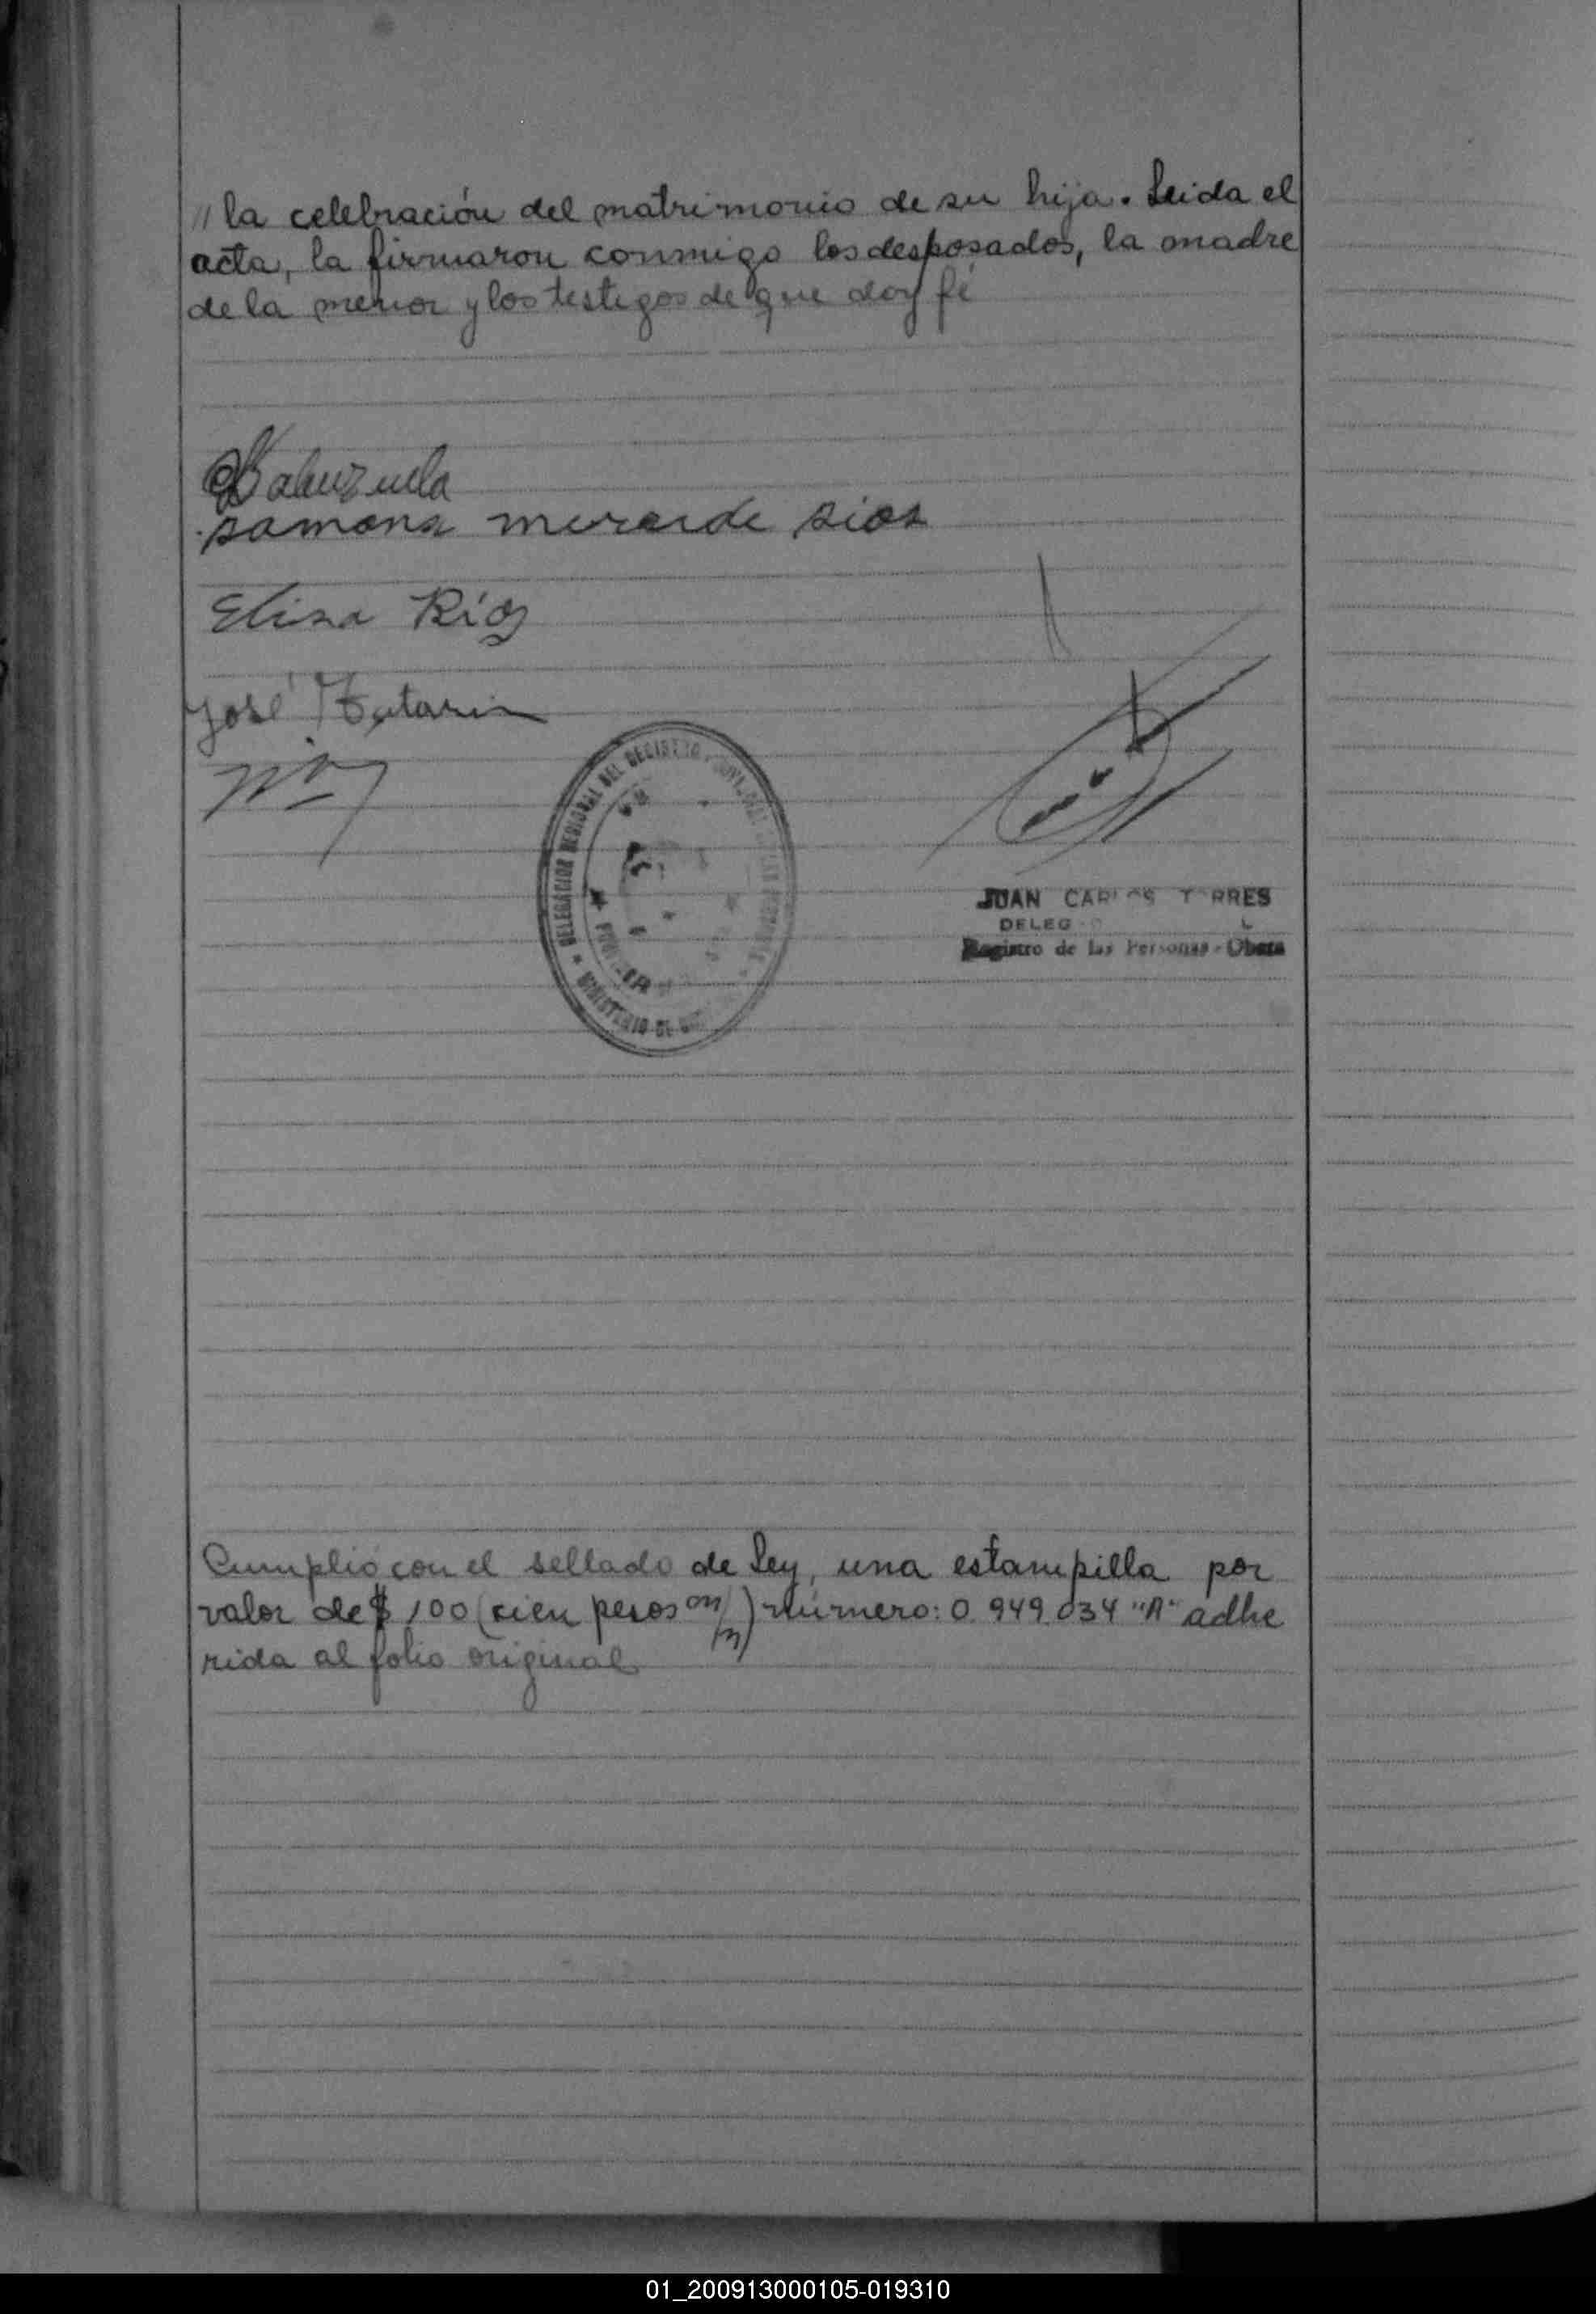 // la celebración del matrimonio de su hija. Leida el
acta, la firmaron conmigo los desposados, la madre
de la menor y los testigos de que doy fé
ramona mererde rios
Elisa Ríos
José
DELEGACION REGIONAL DEL REGISTRO
MINISTERIO DE
JUAN CARLOS TORRES
Registro de las Personas - Obera
Cumplió con el sellado de Ley, una estampilla por
valor de $ 100 (cien pesos m/n) número: 0.949.034 "A" adhe
rida al folio original
01_200913000105-019310